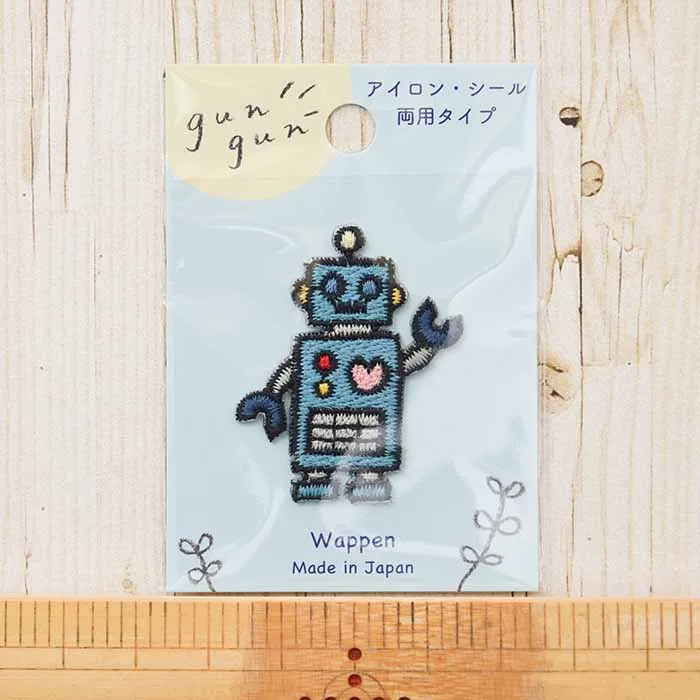 gun
gun
アイロン・シール
両用タイプ
Wappen
Made in Japan